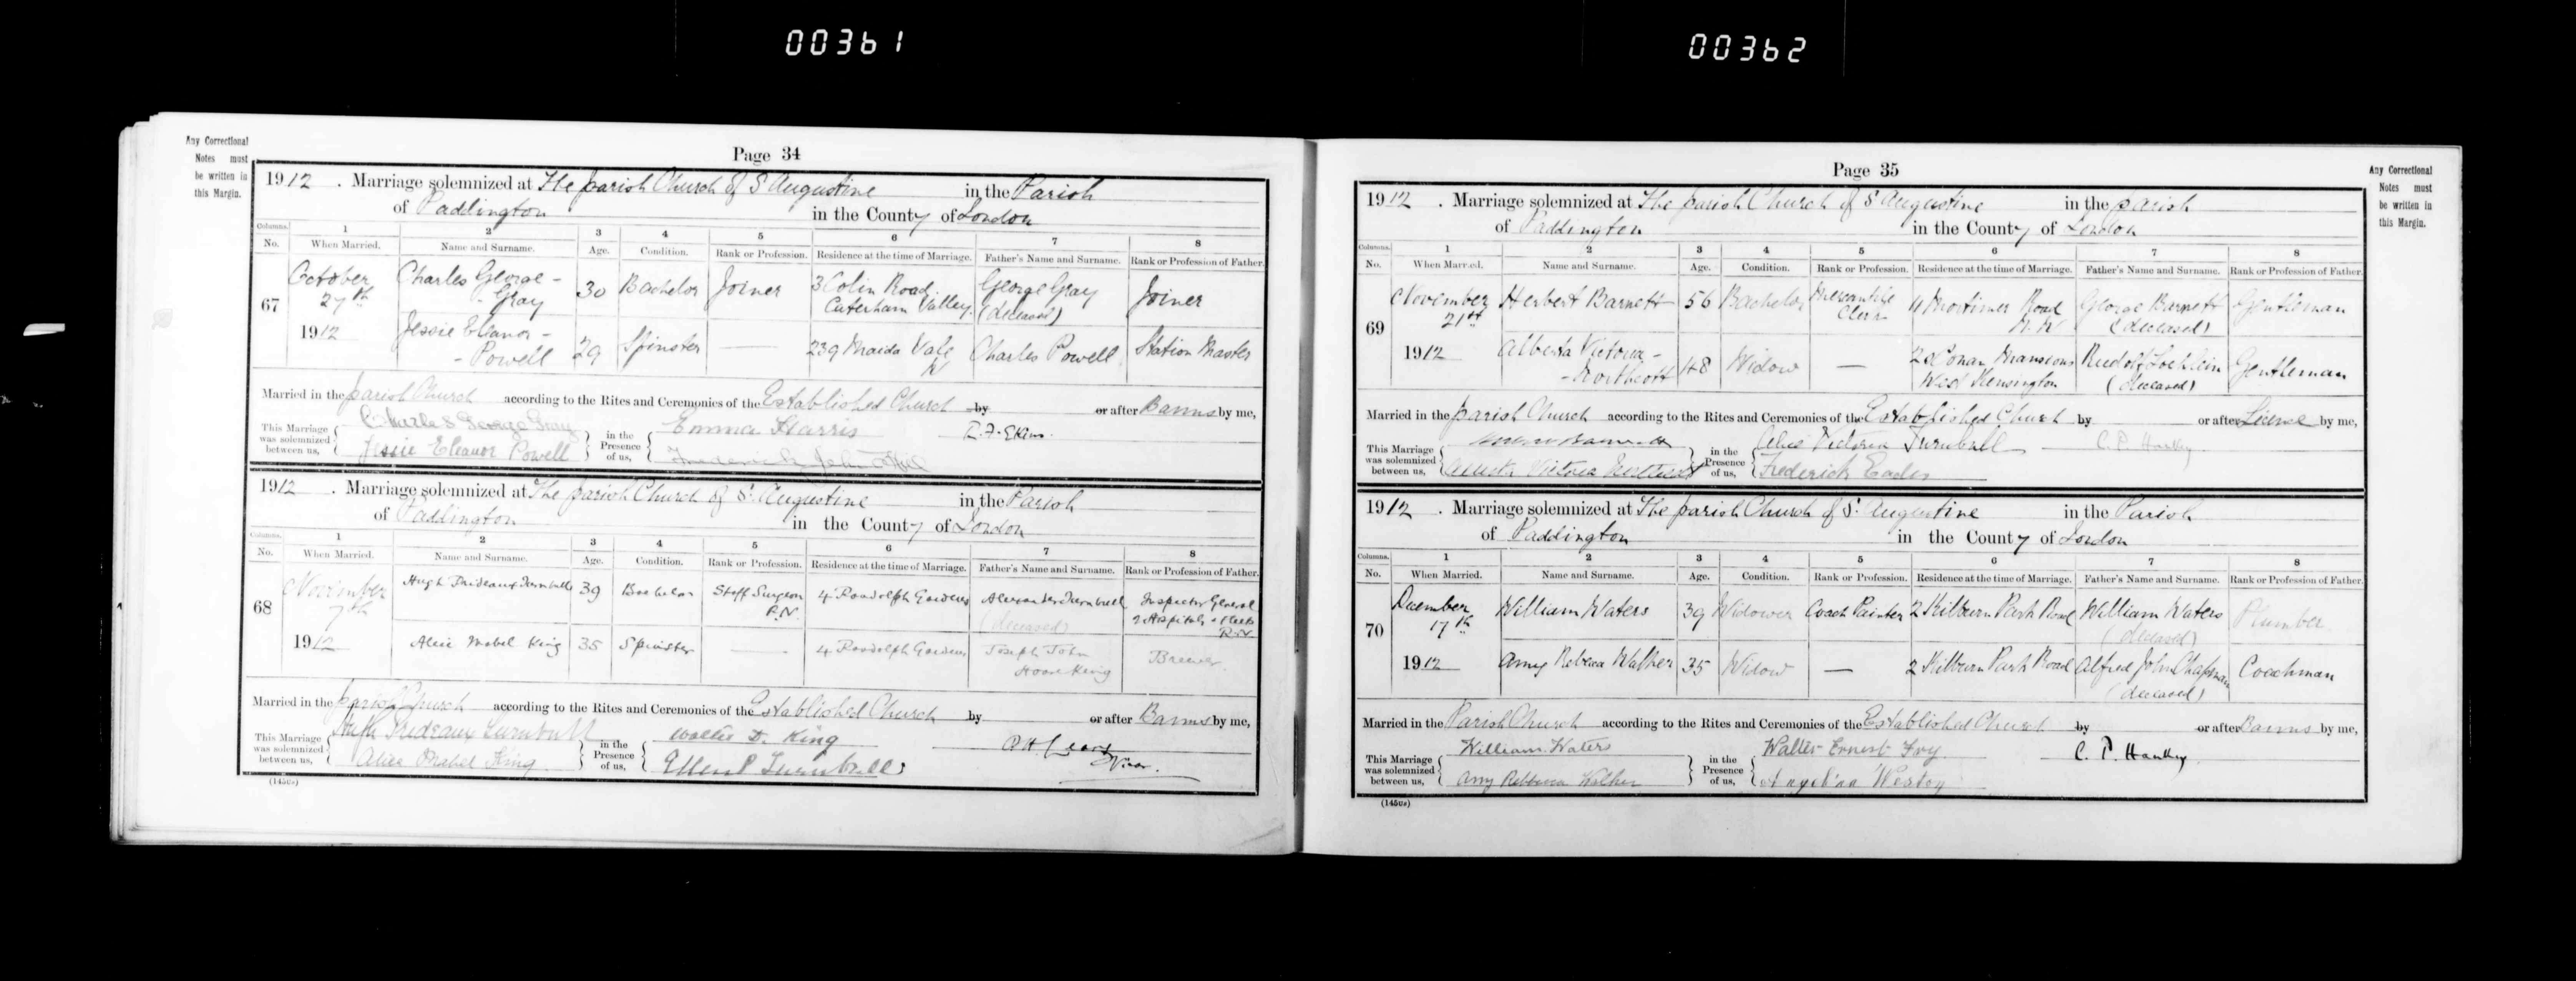 00361
00362
Any Correctional
Notes must
be written in
this Margin.
Page 34
1912. Marriage solemnized at The parish Church of S Augustine in the Parish
of Paddington in the County of London
Columns. 1 2 3 4 5 6 7 8
No. When Married. Name and Surname. Age. Condition. Rank or Profession. Residence at the time of Marriage. Father's Name and Surname. Rank or Profession of Father.
67
October 27th 1912
Charles George - - Gray 30 Bachelor Joiner 3 Colin Road Caterham Valley. George Gray (deceased) Joiner
Jessie Eleanor - - Powell 29 Spinster — 239 Maida Vale W Charles Powell Station Master
Married in the parish Church according to the Rites and Ceremonies of the Established Church by or after Banns by me,
This Marriage was solemnized between us, Charles George Gray Jessie Eleanor Powell in the Presence of us, Emma Harris Frederick John
1912. Marriage solemnized at The parish Church of St. Augustine in the Parish
of Paddington in the County of London
Columns. 1 2 3 4 5 6 7 8
No. When Married. Name and Surname. Age. Condition. Rank or Profession. Residence at the time of Marriage. Father's Name and Surname. Rank or Profession of Father.
68
November 7th 1912
Hugh Prideaux Turnbull 39 Bachelor Staff Surgeon R.N. 4 Randolph Gardens Alexander Turnbull (deceased) Inspector General of Hospitals & Fleets R.N.
Alice Mabel King 35 Spinster — 4 Randolph Gardens Joseph John Hoare King Brewer.
Married in the parish Church according to the Rites and Ceremonies of the Established Church by or after Banns by me,
This Marriage was solemnized between us, Hugh Prideaux Turnbull Alice Mabel King in the Presence of us, Walter D. King Ellen P Turnbull Vicar.
(145Us)
Page 35
Any Correctional
Notes must
be written in
this Margin.
1912. Marriage solemnized at The parish Church of S Augustine in the parish
of Paddington in the County of London
Columns. 1 2 3 4 5 6 7 8
No. When Married. Name and Surname. Age. Condition. Rank or Profession. Residence at the time of Marriage. Father's Name and Surname. Rank or Profession of Father.
69
November 21st 1912
Herbert Barnett 56 Bachelor Mercantile Clerk 11 Mortimer Road N.W George Barnett (deceased) Gentleman
Alberta Victoria - - Northcott 48 Widow — Conan Mansions West Kensington Rudolf (deceased) Gentleman
Married in the parish Church according to the Rites and Ceremonies of the Established Church by or after License by me,
This Marriage was solemnized between us, Victoria in the Presence of us, Alice Victoria Turnbull Frederick Eades C. P. Hankey
1912. Marriage solemnized at The parish Church of St. Augustine in the Parish
of Paddington in the County of London
Columns. 1 2 3 4 5 6 7 8
No. When Married. Name and Surname. Age. Condition. Rank or Profession. Residence at the time of Marriage. Father's Name and Surname. Rank or Profession of Father.
70
December 17th 1912
William Waters 39 Widower Coach Painter 2 Kilburn Park Road William Waters (deceased) Plumber
Amy Rebecca Walker 35 Widow — 2 Kilburn Park Road Alfred John Chapman (deceased) Coachman
Married in the Parish Church according to the Rites and Ceremonies of the Established Church by or after Banns by me,
This Marriage was solemnized between us, William Waters Amy Rebecca Walker in the Presence of us, Walter Ernest Fry Angelina Weston C. P. Hankey
(145Us)